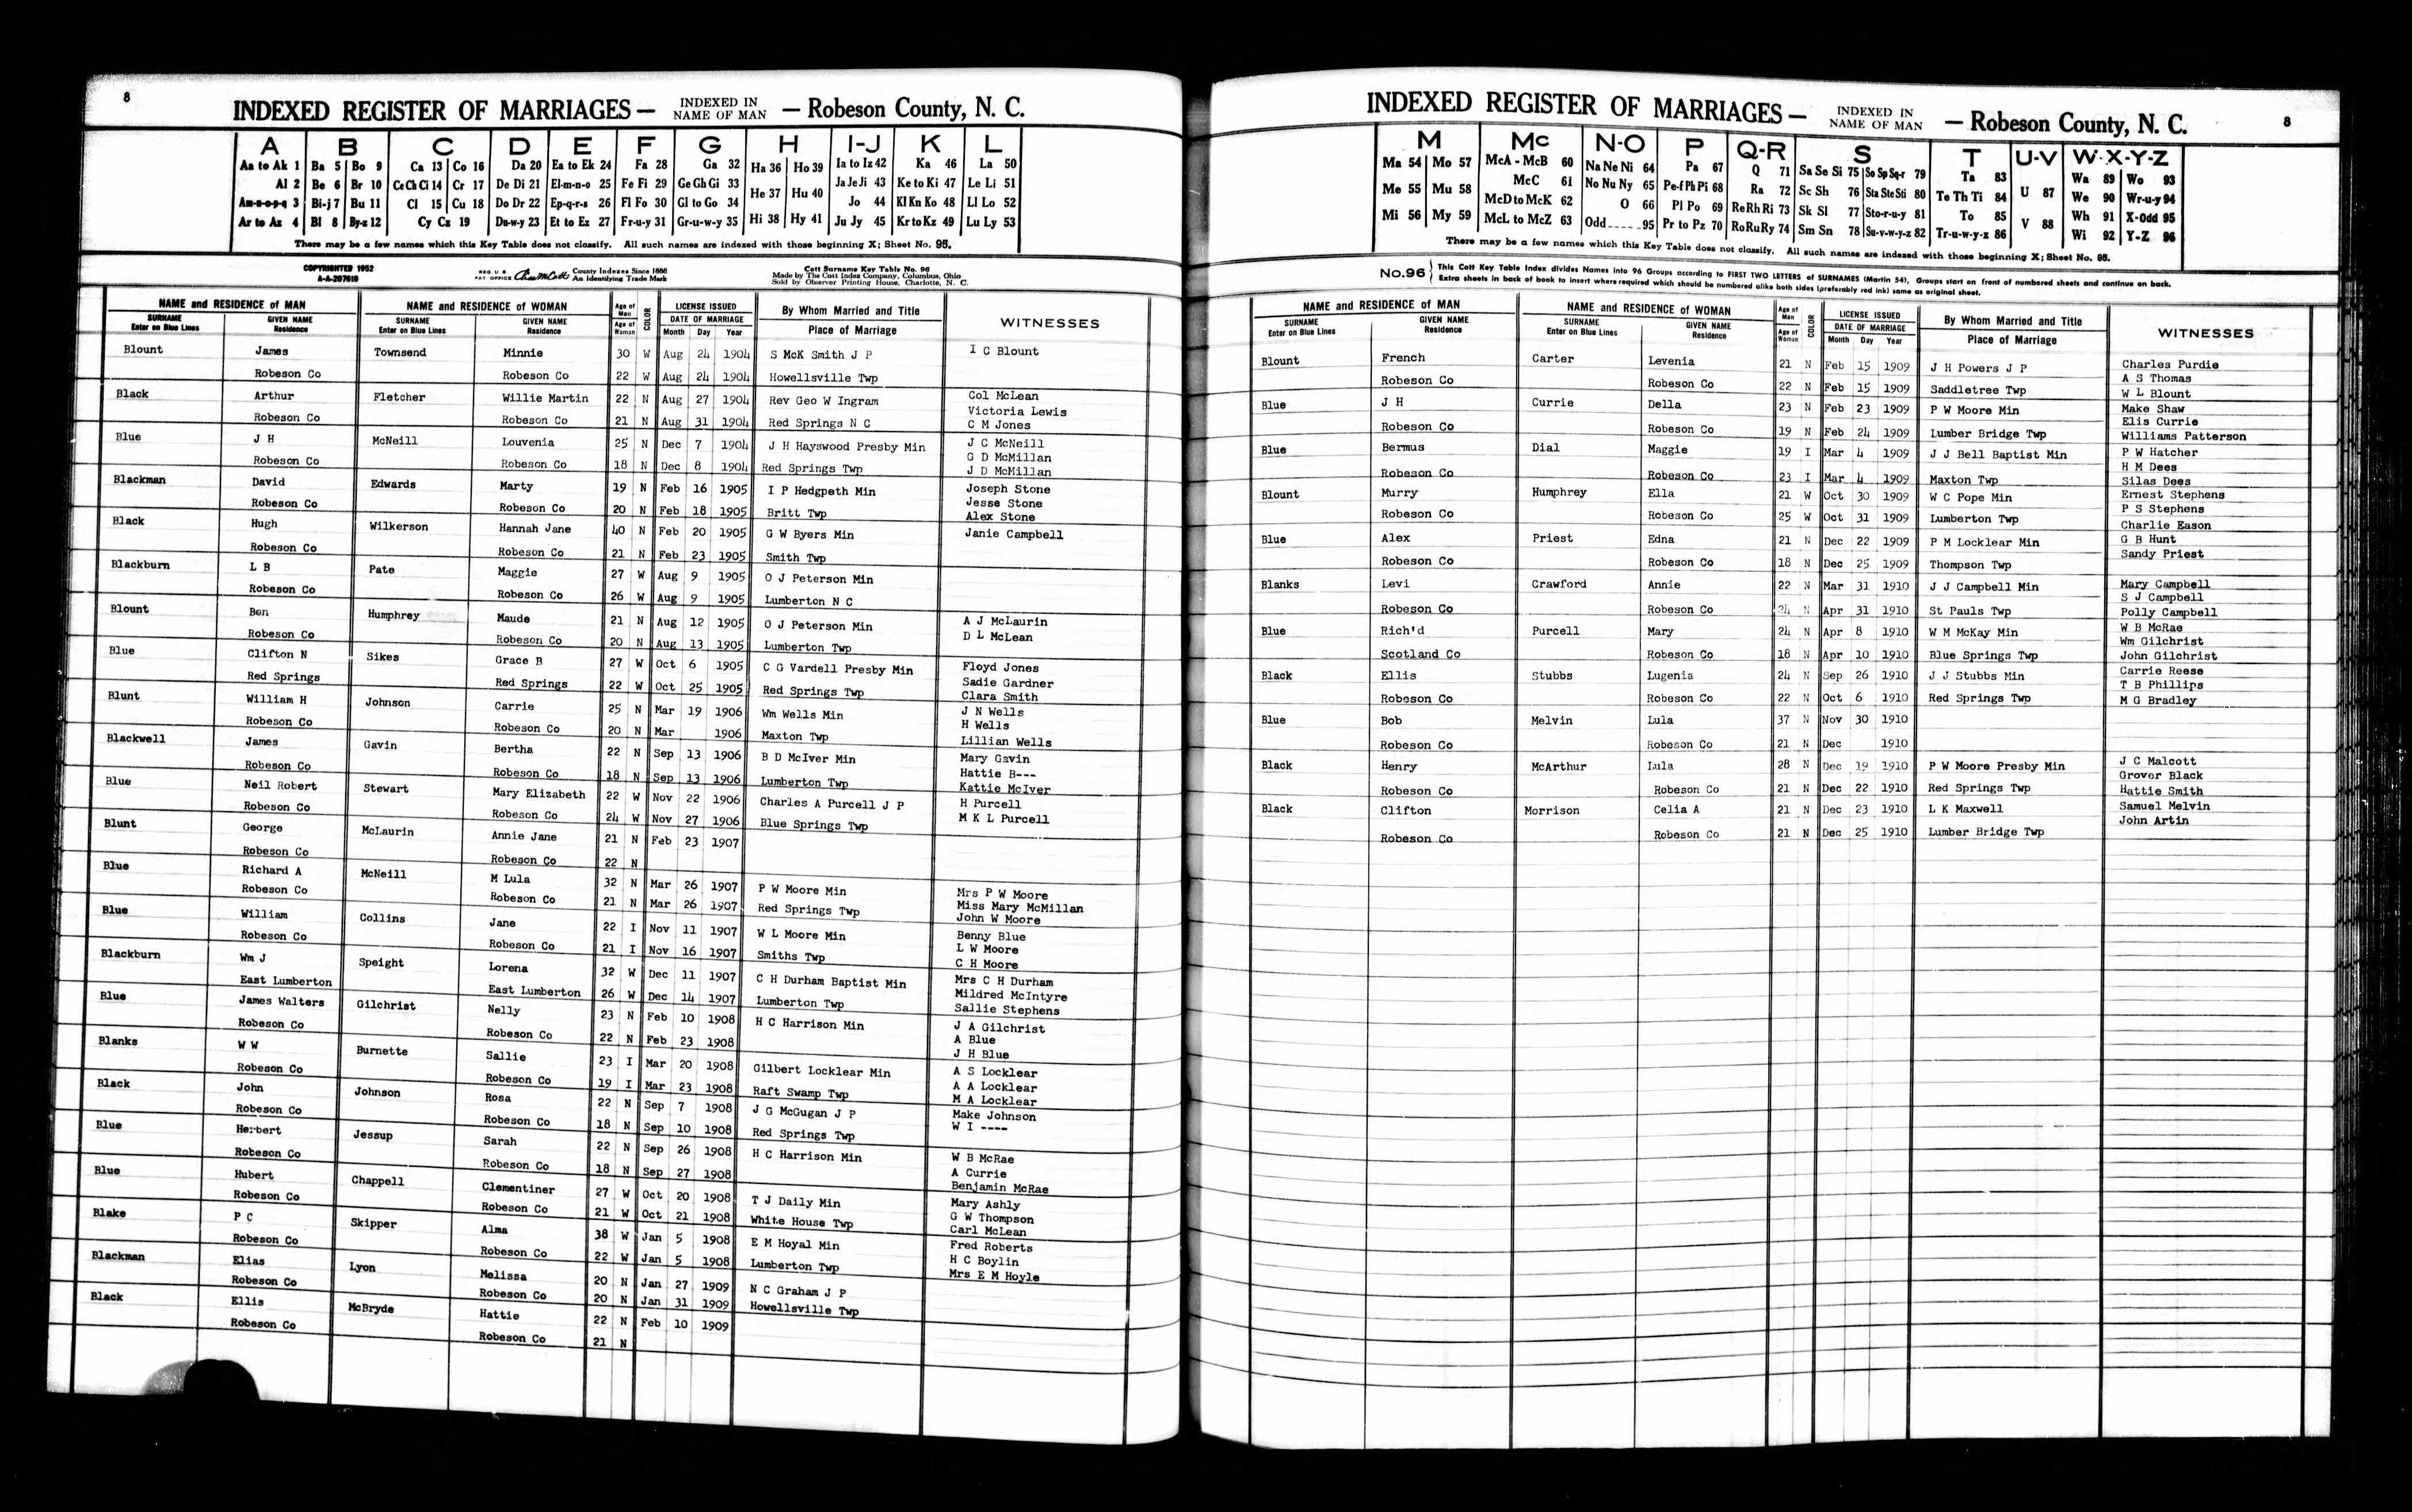 8
INDEXED REGISTER OF MARRIAGES — INDEXED IN NAME OF MAN — Robeson County, N. C.
A B C D E F G H I-J K L
Aa to Ak 1 Ba 5 Bo 9 Ca 13 Co 16 Da 20 Ea to Ek 24 Fa 28 Ga 32 Ha 36 Ho 39 Ia to Iz 42 Ka 46 La 50
Al 2 Be 6 Br 10 Ce Ch Ci 14 Cr 17 De Di 21 El-m-n-o 25 Fe Fi 29 Ge Gh Gi 33 He 37 Hu 40 Ja Je Ji 43 Ke to Ki 47 Le Li 51
Am-n-o-p-q 3 Bi-j 7 Bu 11 Cl 15 Cu 18 Do Dr 22 Ep-q-r-s 26 Fl Fo 30 Gl to Go 34 Jo 44 Kl Kn Ko 48 Ll Lo 52
Ar to Az 4 Bl 8 By-z 12 Cy Cz 19 Du-w-y 23 Et to Ez 27 Fr-u-y 31 Gr-u-w-y 35 Hi 38 Hy 41 Ju Jy 45 Kr to Kz 49 Lu Ly 53
There may be a few names which this Key Table does not classify. All such names are indexed with those beginning X; Sheet No. 95.
COPYRIGHTED 1952
A-A-207619
REG. U.S. PAT. OFFICE County Indexes Since 1888 An Identifying Trade Mark
Cott Surname Key Table No. 96
Made by The Cott Index Company, Columbus, Ohio
Sold by Observer Printing House, Charlotte, N. C.
NAME and RESIDENCE of MAN NAME and RESIDENCE of WOMAN Age of Man COLOR LICENSE ISSUED By Whom Married and Title WITNESSES
SURNAME Enter on Blue Lines GIVEN NAME Residence SURNAME Enter on Blue Lines GIVEN NAME Residence Age of Woman DATE OF MARRIAGE Month Day Year Place of Marriage
Blount James Townsend Minnie 30 W Aug 24 1904 S McK Smith J P I C Blount
Robeson Co Robeson Co 22 W Aug 24 1904 Howellsville Twp
Black Arthur Fletcher Willie Martin 22 N Aug 27 1904 Rev Geo W Ingram Col McLean
Victoria Lewis
Robeson Co Robeson Co 21 N Aug 31 1904 Red Springs N C C M Jones
Blue J H McNeill Louvenia 25 N Dec 7 1904 J H Hayswood Presby Min J C McNeill
G D McMillan
Robeson Co Robeson Co 18 N Dec 8 1904 Red Springs Twp J D McMillan
Blackman David Edwards Marty 19 N Feb 16 1905 I P Hedgpeth Min Joseph Stone
Jesse Stone
Robeson Co Robeson Co 20 N Feb 18 1905 Britt Twp Alex Stone
Black Hugh Wilkerson Hannah Jane 40 N Feb 20 1905 G W Byers Min Janie Campbell
Robeson Co Robeson Co 21 N Feb 23 1905 Smith Twp
Blackburn L B Pate Maggie 27 W Aug 9 1905 O J Peterson Min
Robeson Co Robeson Co 26 W Aug 9 1905 Lumberton N C
Blount Ben Humphrey Maude 21 N Aug 12 1905 O J Peterson Min A J McLaurin
Robeson Co Robeson Co 20 N Aug 13 1905 Lumberton Twp D L McLean
Blue Clifton N Sikes Grace B 27 W Oct 6 1905 C G Vardell Presby Min Floyd Jones
Sadie Gardner
Red Springs Red Springs 22 W Oct 25 1905 Red Springs Twp Clara Smith
Blunt William H Johnson Carrie 25 N Mar 19 1906 Wm Wells Min J N Wells
H Wells
Robeson Co Robeson Co 20 N Mar 1906 Maxton Twp Lillian Wells
Blackwell James Gavin Bertha 22 N Sep 13 1906 B D McIver Min Mary Gavin
Hattie B---
Robeson Co Robeson Co 18 N Sep 13 1906 Lumberton Twp Kattie McIver
Blue Neil Robert Stewart Mary Elizabeth 22 W Nov 22 1906 Charles A Purcell J P H Purcell
Robeson Co Robeson Co 24 W Nov 27 1906 Blue Springs Twp M K L Purcell
Blunt George McLaurin Annie Jane 21 N Feb 23 1907
Robeson Co Robeson Co 22 N
Blue Richard A McNeill M Lula 32 N Mar 26 1907 P W Moore Min Mrs P W Moore
Miss Mary McMillan
Robeson Co Robeson Co 21 N Mar 26 1907 Red Springs Twp John W Moore
Blue William Collins Jane 22 I Nov 11 1907 W L Moore Min Benny Blue
L W Moore
Robeson Co Robeson Co 21 I Nov 16 1907 Smiths Twp C H Moore
Blackburn Wm J Speight Lorena 32 W Dec 11 1907 C H Durham Baptist Min Mrs C H Durham
Mildred McIntyre
East Lumberton East Lumberton 26 W Dec 14 1907 Lumberton Twp Sallie Stephens
Blue James Walters Gilchrist Nelly 23 N Feb 10 1908 H C Harrison Min J A Gilchrist
A Blue
Robeson Co Robeson Co 22 N Feb 23 1908 J H Blue
Blanks W W Burnette Sallie 23 I Mar 20 1908 Gilbert Locklear Min A S Locklear
A A Locklear
Robeson Co Robeson Co 19 I Mar 23 1908 Raft Swamp Twp M A Locklear
Black John Johnson Rosa 22 N Sep 7 1908 J G McGugan J P Make Johnson
W I ----
Robeson Co Robeson Co 18 N Sep 10 1908 Red Springs Twp
Blue Herbert Jessup Sarah 22 N Sep 26 1908 H C Harrison Min W B McRae
A Currie
Robeson Co Robeson Co 18 N Sep 27 1908 Benjamin McRae
Blue Hubert Chappell Clementiner 27 W Oct 20 1908 T J Daily Min Mary Ashly
G W Thompson
Robeson Co Robeson Co 21 W Oct 21 1908 White House Twp Carl McLean
Blake P C Skipper Alma 38 W Jan 5 1908 E M Hoyal Min Fred Roberts
H C Boylin
Robeson Co Robeson Co 22 W Jan 5 1908 Lumberton Twp Mrs E M Hoyle
Blackman Elias Lyon Melissa 20 N Jan 27 1909 N C Graham J P
Robeson Co Robeson Co 20 N Jan 31 1909 Howellsville Twp
Black Ellis McBryde Hattie 22 N Feb 10 1909
Robeson Co Robeson Co 21 N
INDEXED REGISTER OF MARRIAGES — INDEXED IN NAME OF MAN — Robeson County, N. C. 8
M Mc N-O P Q-R S T U-V W-X-Y-Z
Ma 54 Mo 57 McA - McB 60 Na Ne Ni 64 Pa 67 Q 71 Sa Se Si 75 So Sp Sq-r 79 Ta 83 U 87 Wa 89 Wo 93
Me 55 Mu 58 McC 61 No Nu Ny 65 Pe-f Ph Pi 68 Ra 72 Sc Sh 76 Sta Ste Sti 80 Te Th Ti 84 We 90 Wr-u-y 94
McD to McK 62 O 66 Pl Po 69 Re Rh Ri 73 Sk Sl 77 Sto-r-u-y 81 To 85 V 88 Wh 91 X-Odd 95
Mi 56 My 59 McL to McZ 63 Odd 95 Pr to Pz 70 Ro Ru Ry 74 Sm Sn 78 Su-v-w-y-z 82 Tr-u-w-y-z 86 Wi 92 Y-Z 96
There may be a few names which this Key Table does not classify. All such names are indexed with those beginning X; Sheet No. 95.
No. 96 This Cott Key Table Index divides Names into 96 Groups according to FIRST TWO LETTERS of SURNAMES (Martin 54), Groups start on front of numbered sheets and continue on back.
Extra sheets in back of book to insert where required which should be numbered alike both sides (preferably red ink) same as original sheet.
NAME and RESIDENCE of MAN NAME and RESIDENCE of WOMAN Age of Man COLOR LICENSE ISSUED By Whom Married and Title WITNESSES
SURNAME Enter on Blue Lines GIVEN NAME Residence SURNAME Enter on Blue Lines GIVEN NAME Residence Age of Woman DATE OF MARRIAGE Month Day Year Place of Marriage
Blount French Carter Levenia 21 N Feb 15 1909 J H Powers J P Charles Purdie
A S Thomas
Robeson Co Robeson Co 22 N Feb 15 1909 Saddletree Twp W L Blount
Blue J H Currie Della 23 N Feb 23 1909 P W Moore Min Make Shaw
Elis Currie
Robeson Co Robeson Co 19 N Feb 24 1909 Lumber Bridge Twp Williams Patterson
Blue Bermus Dial Maggie 19 I Mar 4 1909 J J Bell Baptist Min P W Hatcher
H M Dees
Robeson Co Robeson Co 23 I Mar 4 1909 Maxton Twp Silas Dees
Blount Murry Humphrey Ella 21 W Oct 30 1909 W C Pope Min Ernest Stephens
P S Stephens
Robeson Co Robeson Co 25 W Oct 31 1909 Lumberton Twp Charlie Eason
Blue Alex Priest Edna 21 N Dec 22 1909 P M Locklear Min G B Hunt
Sandy Priest
Robeson Co Robeson Co 18 N Dec 25 1909 Thompson Twp
Blanks Levi Crawford Annie 22 N Mar 31 1910 J J Campbell Min Mary Campbell
S J Campbell
Robeson Co Robeson Co 24 N Apr 31 1910 St Pauls Twp Polly Campbell
Blue Rich'd Purcell Mary 24 N Apr 8 1910 W M McKay Min W B McRae
Wm Gilchrist
Scotland Co Robeson Co 18 N Apr 10 1910 Blue Springs Twp John Gilchrist
Black Ellis Stubbs Lugenia 24 N Sep 26 1910 J J Stubbs Min Carrie Reese
T B Phillips
Robeson Co Robeson Co 22 N Oct 6 1910 Red Springs Twp M G Bradley
Blue Bob Melvin Lula 37 N Nov 30 1910
Robeson Co Robeson Co 21 N Dec 1910
Black Henry McArthur Lula 28 N Dec 19 1910 P W Moore Presby Min J C Malcott
Grover Black
Robeson Co Robeson Co 21 N Dec 22 1910 Red Springs Twp Hattie Smith
Black Clifton Morrison Celia A 21 N Dec 23 1910 L K Maxwell Samuel Melvin
John Artin
Robeson Co Robeson Co 21 N Dec 25 1910 Lumber Bridge Twp